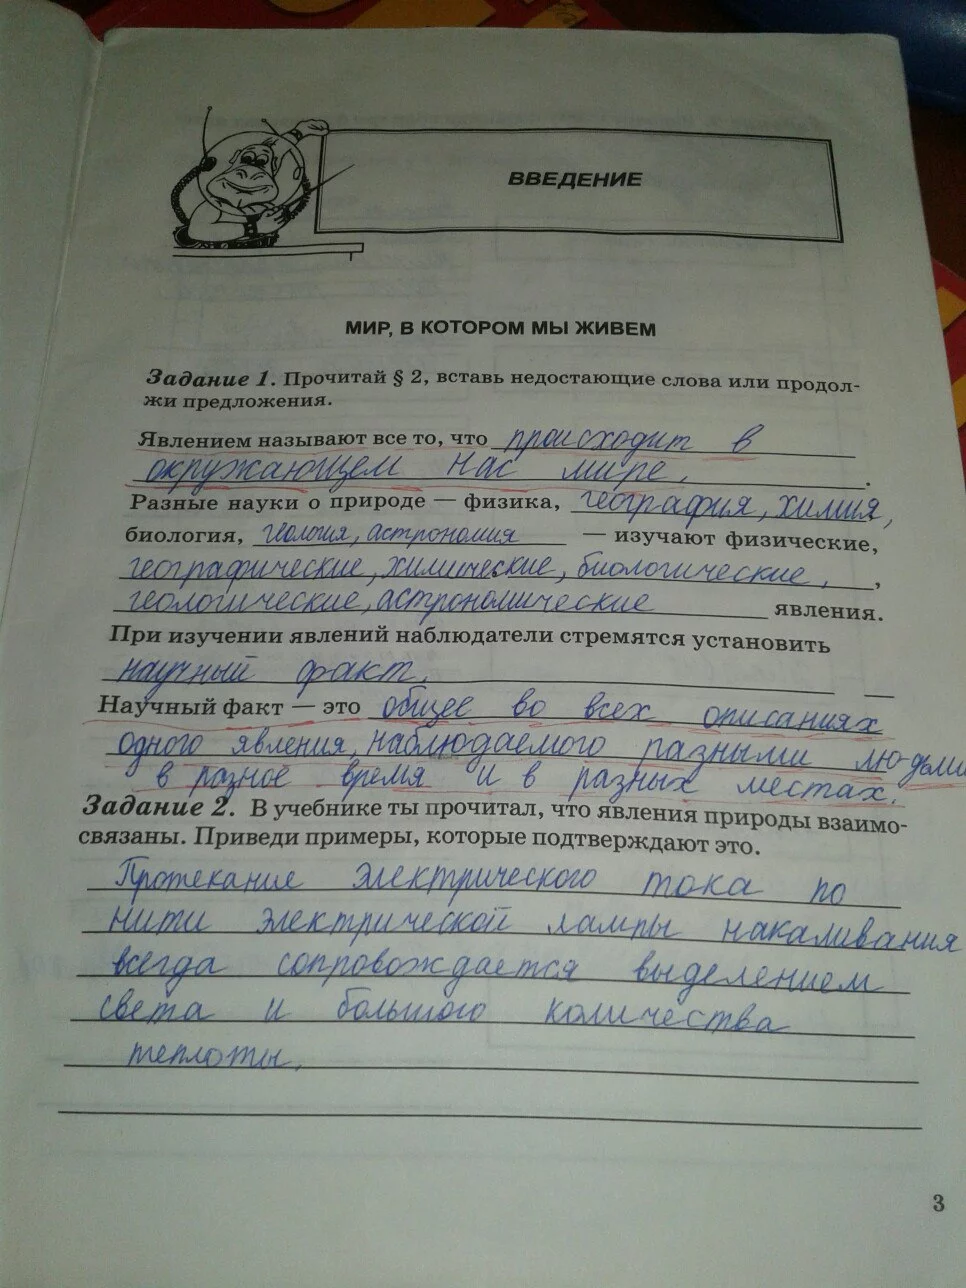 ВВЕДЕНИЕ
МИР, В КОТОРОМ МЫ ЖИВЕМ
Задание 1. Прочитай § 2, вставь недостающие слова или продол-
жи предложения.
Явлением называют все то, что происходит в
окружающем нас мире.
Разные науки о природе — физика, география, химия,
биология, геология, астрономия — изучают физические,
географические, химические, биологические, ,
геологические, астрономические явления.
При изучении явлений наблюдатели стремятся установить
научный факт.
Научный факт — это общее во всех описаниях
одного явления, наблюдаемого разными людьми
в разное время и в разных местах.
Задание 2. В учебнике ты прочитал, что явления природы взаимо-
связаны. Приведи примеры, которые подтверждают это.
Протекание электрического тока по
нити электрической лампы накаливания
всегда сопровождается выделением
света и большого количества
теплоты.
3